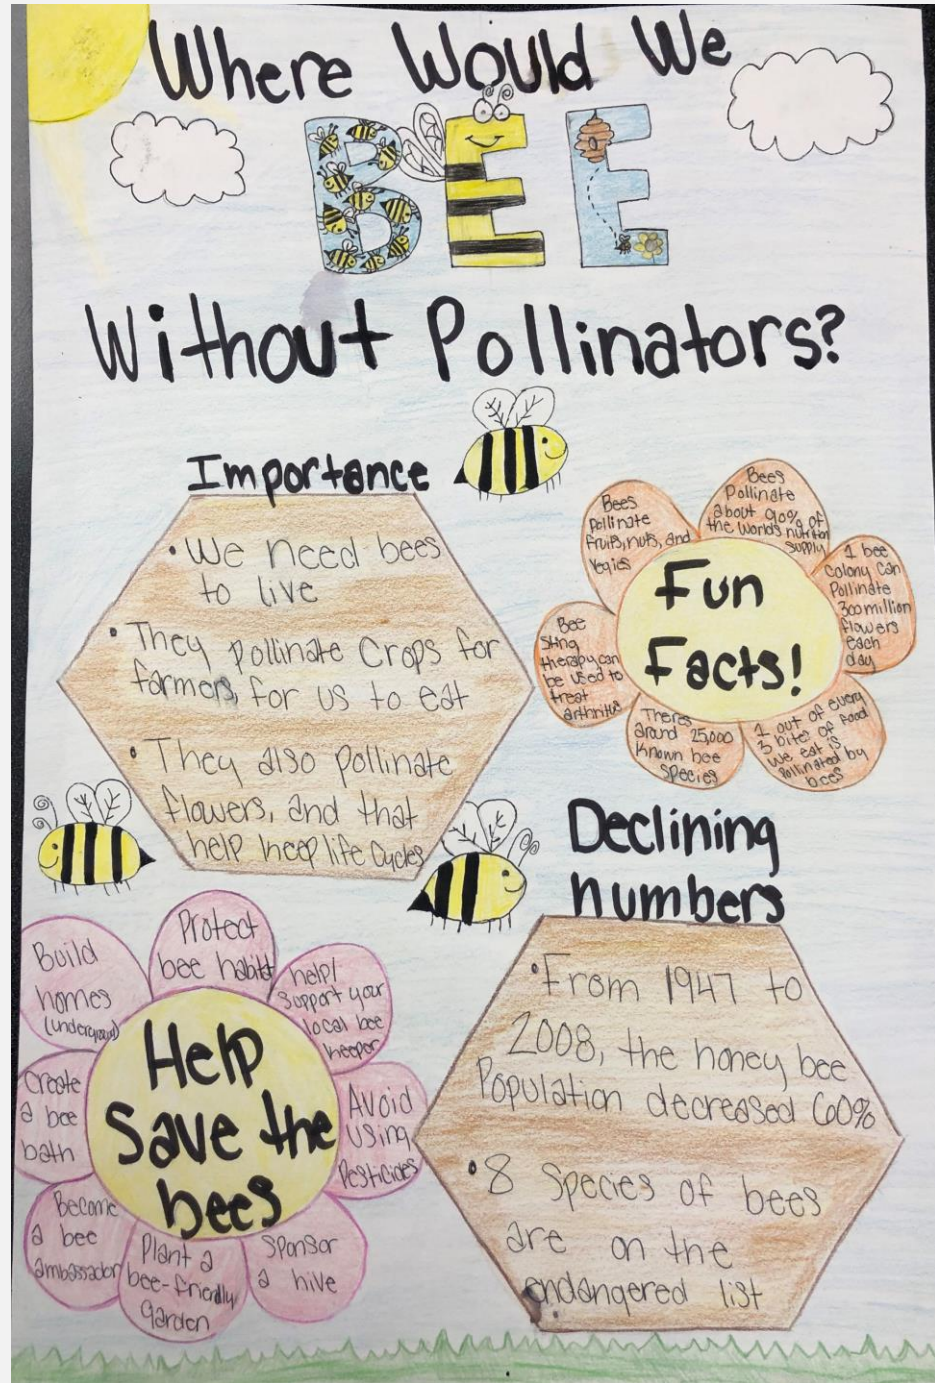 Where Would We
BEE
Without Pollinators?
Importance
• We need bees
to live
• They pollinate crops for
farmers, for us to eat
• They also pollinate
flowers, and that
help keep life cycles
Bees
Pollinate
fruits, nuts, and
vegies
Bees
Pollinate
about 90% of
the worlds nutrition
supply
1 bee
colony can
Pollinate
300 million
flowers
each
day
1 out of every
3 bites of food
we eat is
Pollinated by
bees
Theres
around 25,000
known bee
species
Bee
sting
therapy can
be used to
treat
arthritis
Fun
Facts!
Declining
numbers
• From 1947 to
2008, the honey bee
Population decreased 60%
• 8 species of bees
are on the
endangered list
Help
Save the
bees
Build
homes
(underground)
Protect
bee habitat
help/
support your
local bee
keeper
Avoid
using
Pesticides
sponsor
a hive
Plant a
bee-friendly
garden
Become
a bee
ambassador
Create
a bee
bath